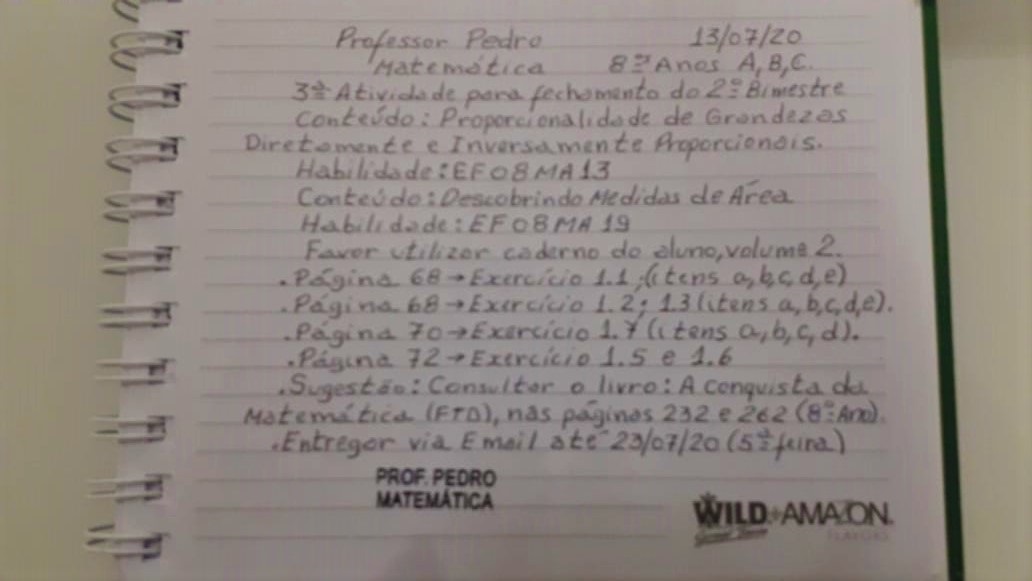 Professor Pedro 13/07/20
Matemática 8ºs Anos A, B, C.
3ª Atividade para fechamento do 2º Bimestre
Conteúdo: Proporcionalidade de Grandezas
Diretamente e Inversamente Proporcionais.
Habilidade: EF08MA13
Conteúdo: Descobrindo Medidas de Área
Habilidade: EF08MA19
Favor utilizar caderno do aluno, volume 2.
. Página 68 → Exercício 1.1; (itens a, b, c, d, e)
. Página 68 → Exercício 1.2; 1.3 (itens a, b, c, d, e).
. Página 70 → Exercício 1.7 (itens a, b, c, d).
. Página 72 → Exercício 1.5 e 1.6
. Sugestão: Consultar o livro: A conquista da
Matemática (FTD), nas páginas 232 e 262 (8º Ano).
. Entregar via Email até 23/07/20 (5ª feira)
PROF. PEDRO
MATEMÁTICA
WILD + AMAZON.
FLAVORS